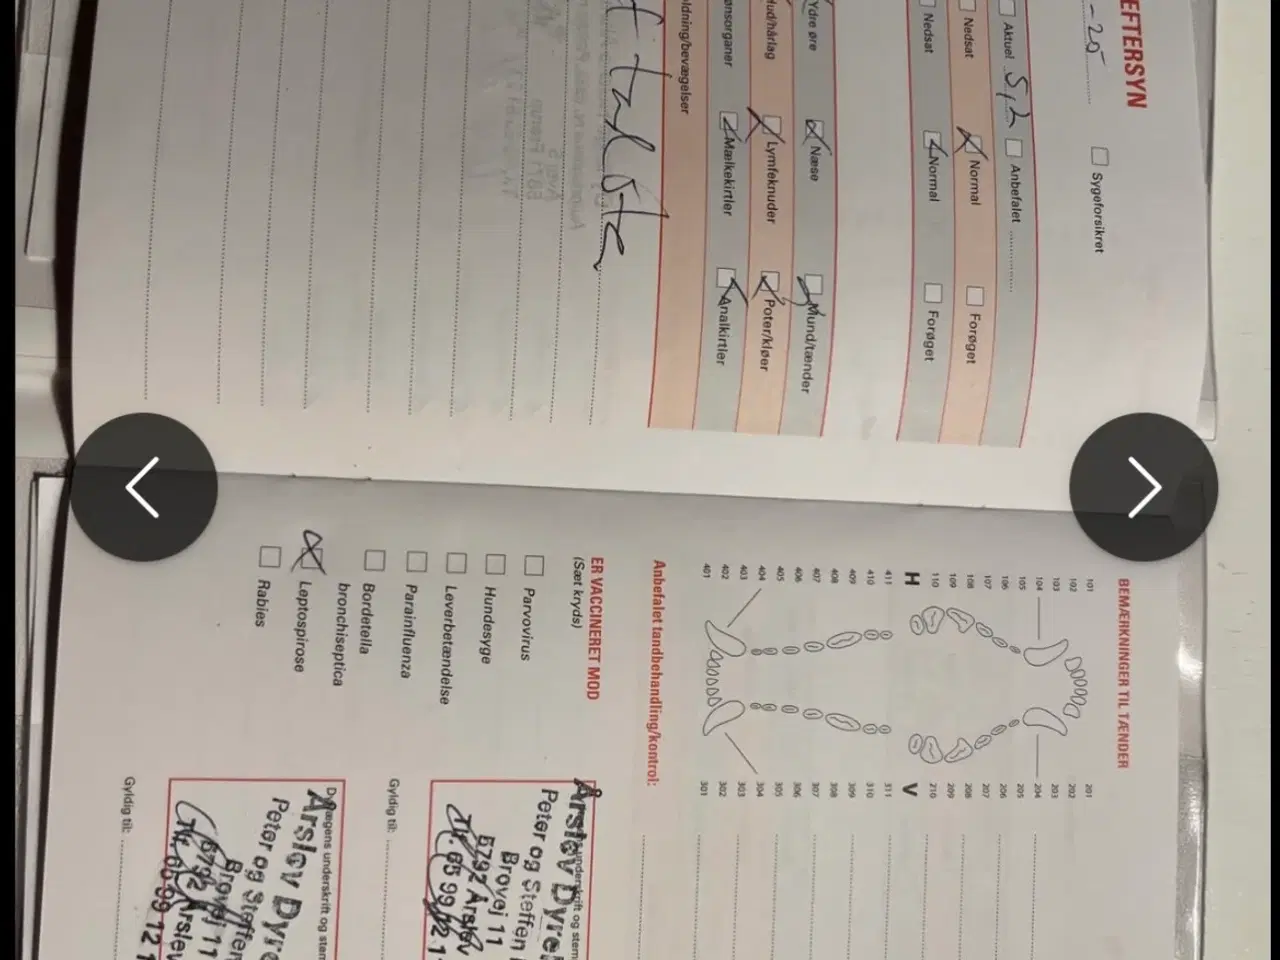 EFTERSYN
-25
Sygeforsikret
Aktuel 5,2 Anbefalet
Nedsat Normal Forøget
Nedsat Normal Forøget
Ydre øre Næse Mund/tænder
Hud/hårlag Lymfeknuder Poter/kløer
ønsorganer Mælkekirtler Analkirtler
oldning/bevægelser
BEMÆRKNINGER TIL TÆNDER
101 201
102 202
103 203
104 204
105 205
106 206
107 207
108 208
109 209
110 210
H V
411 311
410 310
409 309
408 308
407 307
406 306
405 305
404 304
403 303
402 302
401 301
Anbefalet tandbehandling/kontrol:
ER VACCINERET MOD
(Sæt kryds)
Parvovirus
Hundesyge
Leverbetændelse
Parainfluenza
Bordetella
bronchiseptica
Leptospirose
Rabies
underskrift og stem
Årslev Dyre
Peter og Steffen
Brovej 11
5792 Årslev
Tlf. 65 99 12 1
Gyldig til:
Dyrlægens underskrift og stem
Årslev Dyre
Peter og Steffen
Brovej 11
5792 Årslev
Tlf. 65 99 12 1
Gyldig til: